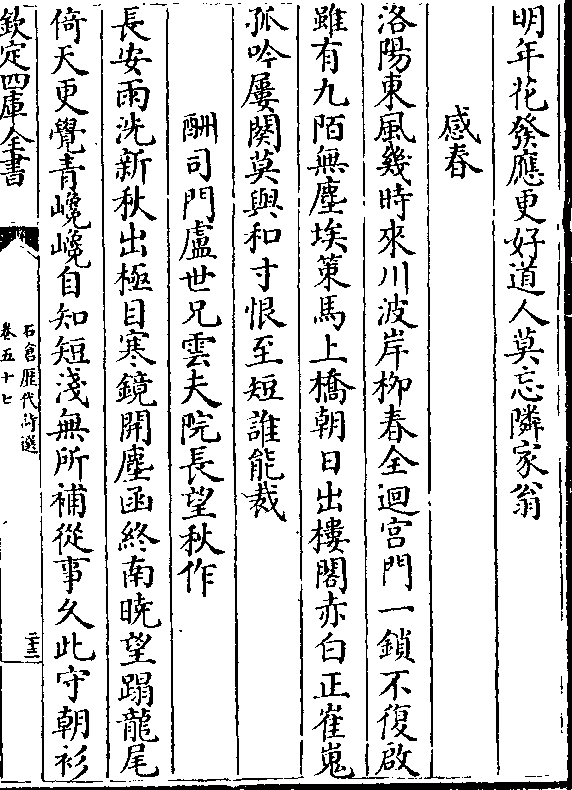 明年花發應更好道人莫忘隣家翁
感春
洛陽東風幾時來川波岸栁春全迴宮門一鎖不復啟
雖有九陌無塵埃策馬上橋朝日出樓閣赤白正崔嵬
孤吟屢闋莫與和寸恨至短誰能裁
酬司門盧世兄雲夫院長望秋作
長安雨洗新秋出極目寒鏡開塵函終南曉望蹋龍尾
倚天更覺青巉巉自知短淺無所補從事久此守朝衫
欽定四庫全書
石倉歴代詩選
卷五十七
二十三